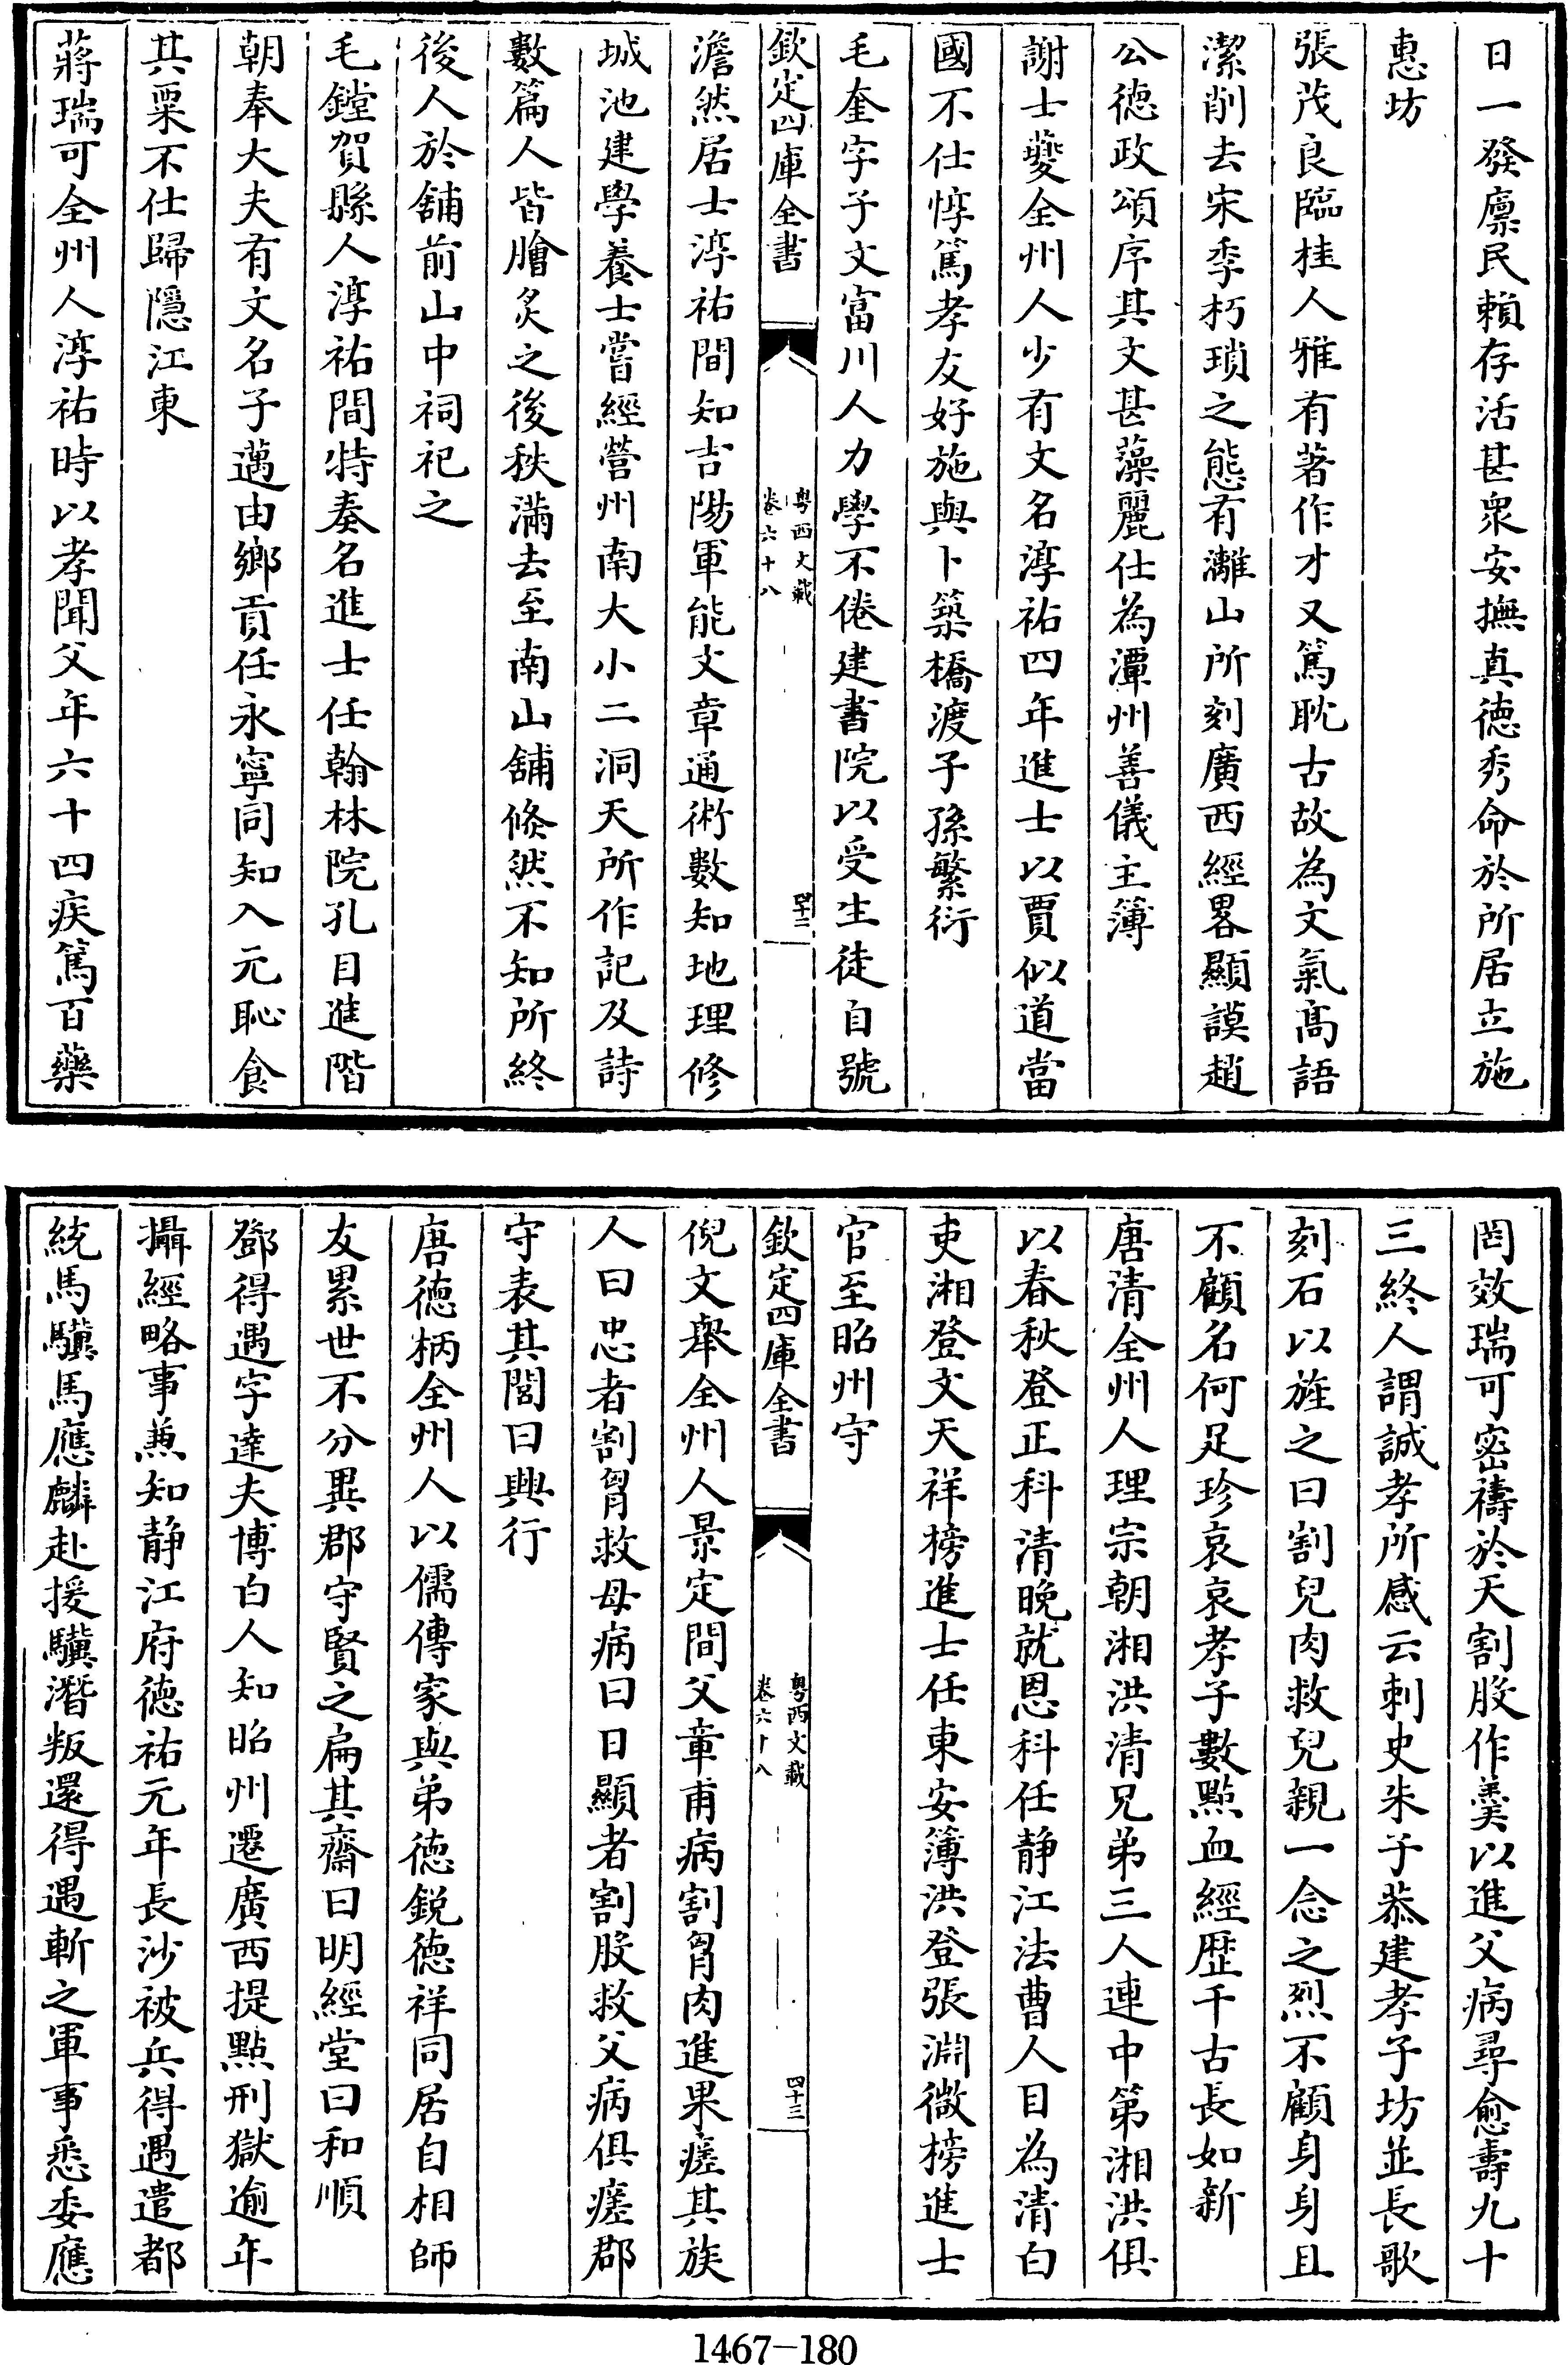 日一發廪民賴存活甚衆安撫真徳秀命於所居立施
惠坊
張茂良臨桂人雅有著作才又篤耽古故為文氣髙語
潔削去宋季朽瑣之態有灕山所刻廣西經畧顯謨趙
公徳政頌序其文甚藻麗仕為潭州善儀主簿
謝士夔全州人少有文名淳祐四年進士以賈似道當
國不仕惇篤孝友好施與卜築橋渡子孫繁衍
毛奎字子文富川人力學不倦建書院以受生徒自號
欽定四庫全書
粤西文載
卷六十八
四十二
澹然居士淳祐間知吉陽軍能文章通術數知地理修
城池建學養士嘗經營州南大小二洞天所作記及詩
數篇人皆膾炙之後秩滿去至南山舖倐然不知所終
後人於舖前山中祠祀之
毛鏜賀縣人淳祐間特奏名進士任翰林院孔目進階
朝奉大夫有文名子邁由鄉貢任永寧同知入元恥食
其粟不仕歸隱江東
蔣瑞可全州人淳祐時以孝聞父年六十四疾篤百藥
罔效瑞可密禱於天割股作羮以進父病尋愈壽九十
三終人謂誠孝所感云刺史朱子恭建孝子坊並長歌
刻石以旌之曰割兒肉救兒親一念之烈不顧身身且
不顧名何足珍哀哀孝子數點血經歴千古長如新
唐清全州人理宗朝湘洪清兄弟三人連中第湘洪俱
以春秋登正科清晚就恩科任静江法曹人目為清白
吏湘登文天祥榜進士任東安簿洪登張淵微榜進士
官至昭州守
欽定四庫全書
粤西文載
卷六十八
四十三
倪文舉全州人景定間父章甫病割胷肉進果瘥其族
人曰忠者割胷救母病曰日顯者割股救父病俱瘥郡
守表其閭曰興行
唐徳柄全州人以儒傳家與弟徳銳徳祥同居自相師
友累世不分異郡守賢之扁其齋曰明經堂曰和順
鄧得遇字達夫博白人知昭州遷廣西提點刑獄逾年
攝經略事兼知静江府徳祐元年長沙被兵得遇遣都
統馬驥馬應麟赴援驥潛叛還得遇斬之軍事悉委應
1467-180